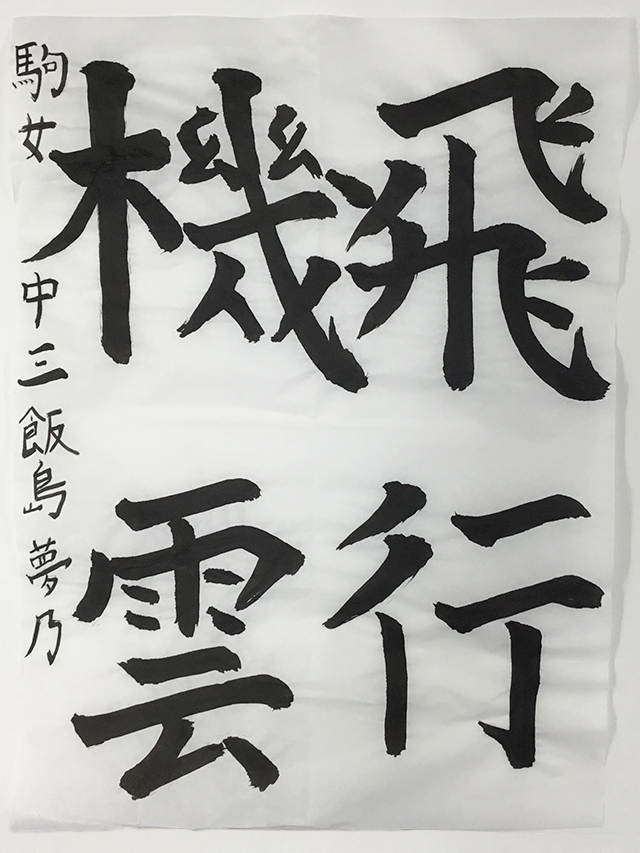 飛行
機雲
駒女 中三 飯島 夢乃